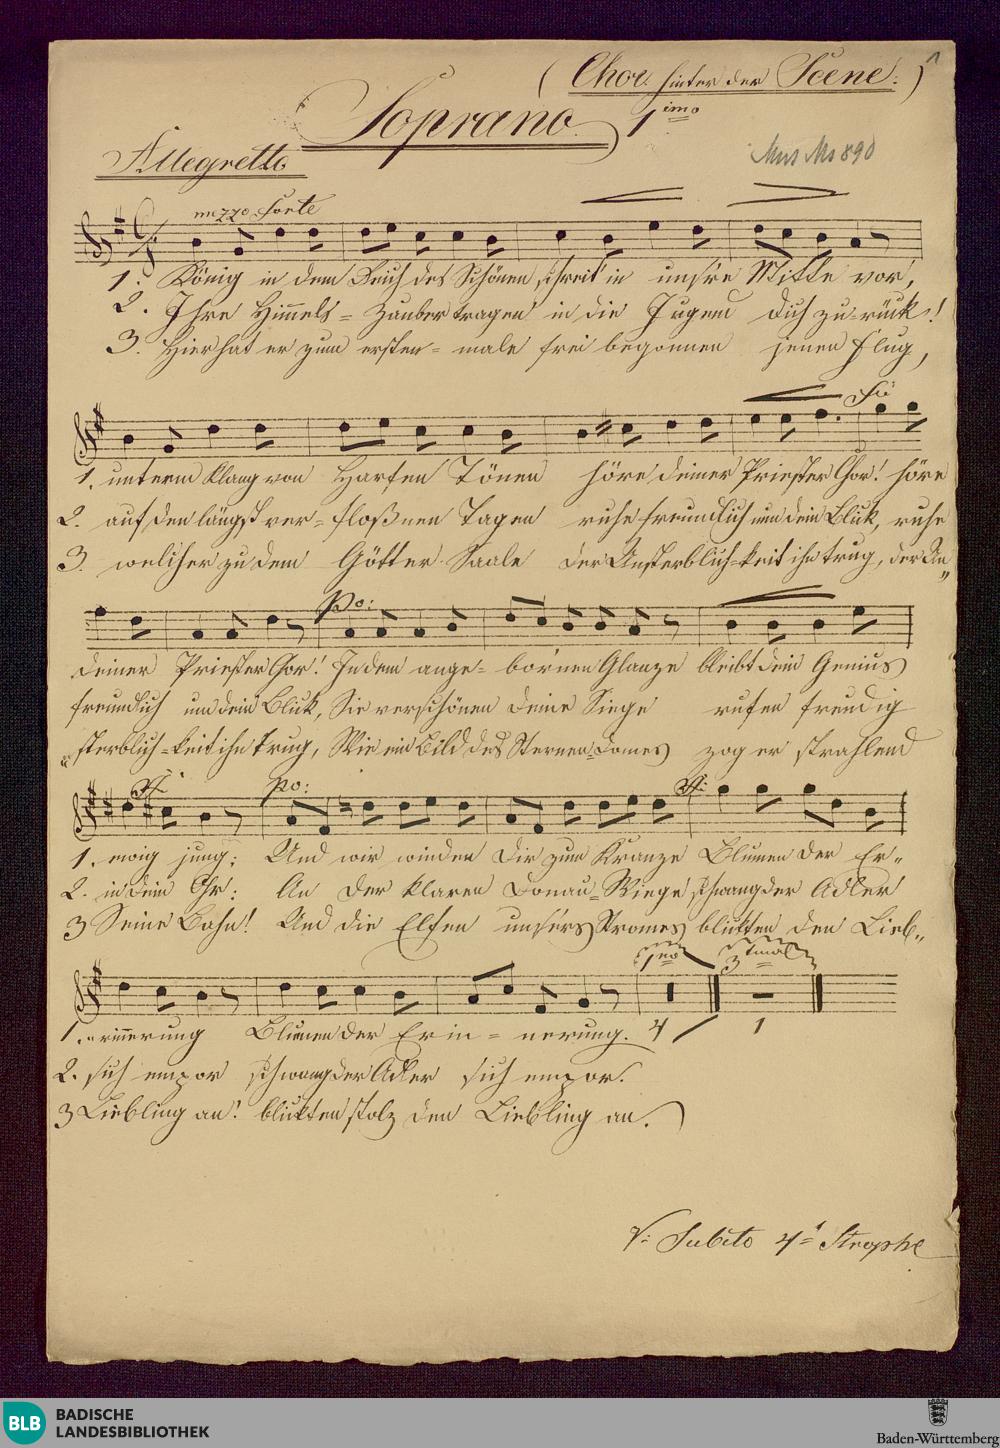 (Chor hinter der Scene.)
1
Soprano 1imo
Mus Ms 890
Allegretto
mezzo forte
1. König in dem Reich des Schönen, schreit' in unsre Mitte vor,
2. Ihre Himmels-Zauber tragen in die Jugend dich zurück!
3. Hier hat er zum erstenmale frei begonnen jenen Flug,
fo
1. unterm Klang von Harfen Tönen höre deiner Priester Chor! höre
2. auf den längst ver-floßnen Tagen ruhe freundlich nun dein Blick, ruhe
3. welcher zu dem Götter Saale der Unsterblich-keit ihn trug, der Un„
po:
deiner Priester Chor! In dem ange-bornen Glanze bleibt dein Genius
freundlich nun dein Blick, Sie verschönen deine Siege rufen freudig
„sterblich-keit ihn trug, Wie ein Bild des Sternen-Domes zog er strahlend
ff. po: ff:
1. ewig jung; Und wir winden dir zum Kranze Blumen der Er„
2. in dein Ohr: An der klaren Donau-Wiege schwang der Adler
3 Seine Bahn! Und die Elfen unsers Stromes blickten den Lieb„
1mo 3tmal
1. „rinnerung Blumen der Erin-nerung. 4 1
2. sich empor schwang der Adler sich empor.
3 Liebling an! blickten stolz den Liebling an.
V: Subito 4t Strophe
BLB
BADISCHE
LANDESBIBLIOTHEK
Baden-Württemberg